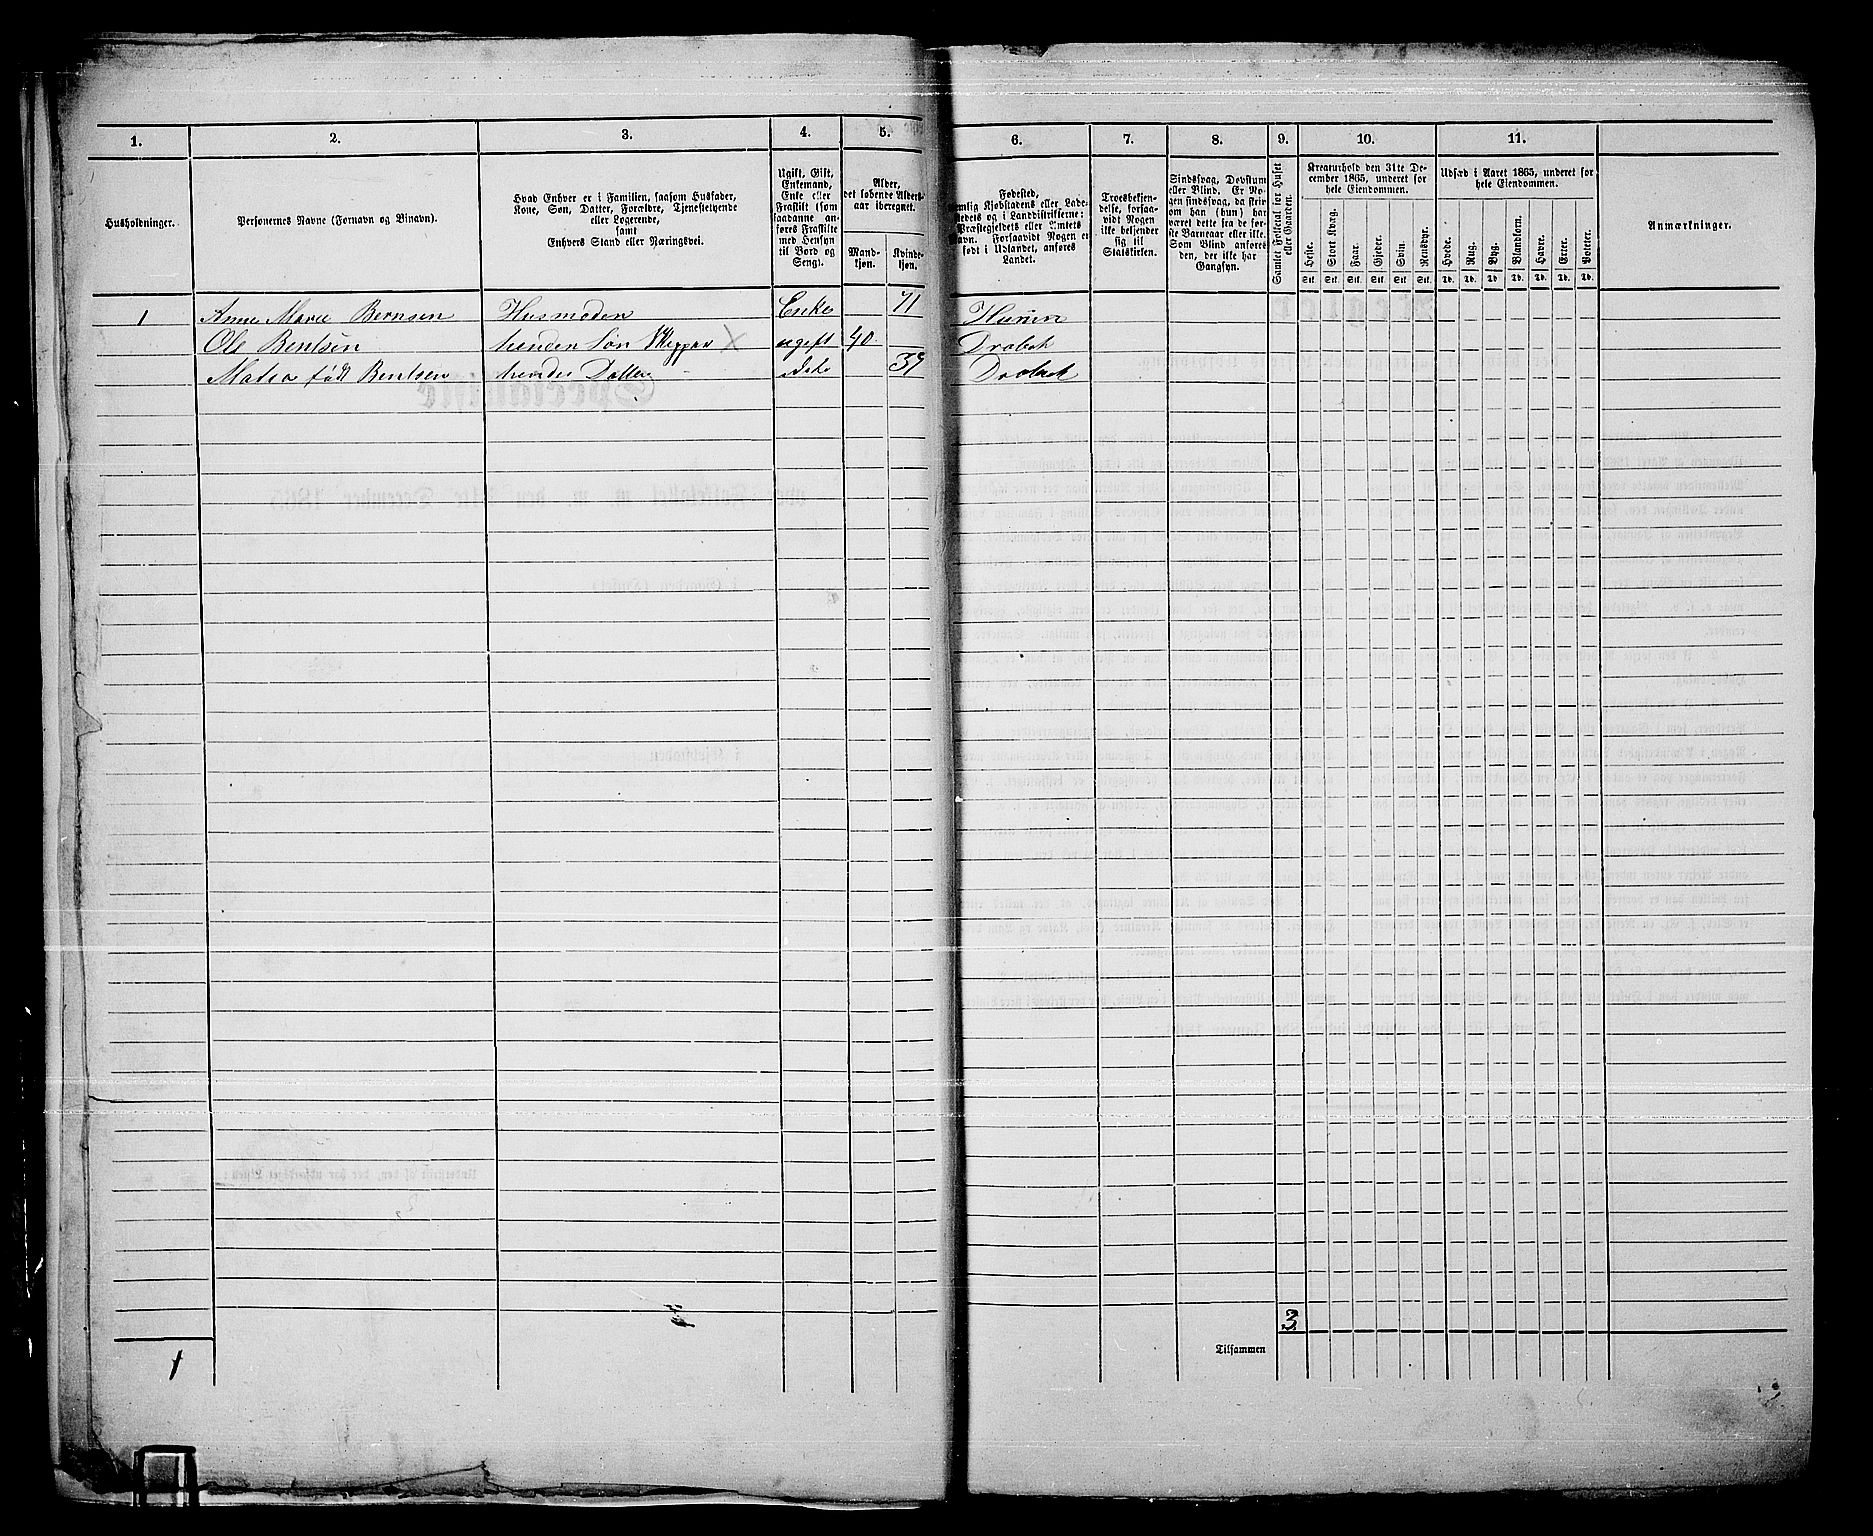 1. 2. 3. 4. 5. 6. 7. 8. 9. 10. 11.
Husholdninger.
Personernes Navne (Fornavn og Binavn).
Hvad Enhver er i Familien, saasom Husfader,
Kone, Søn, Datter, Forældre, Tjenestetyende
eller Logerende,
samt
Enhvers Stand eller Næringsvei.
Ugift, Gift,
Enkemand,
Enke eller
Fraskilt (som
saadanne an-
føres Fraskilte
med Hensyn
til Bord og
Seng).
Alder,
det løbende Alders-
aar iberegnet.
Mand-
kjøn.
Kvinde-
kjøn.
Fødested,
nemlig Kjøbstadens eller Lade-
stedets og i Landdistrikterne:
Præstegjeldets eller Amtets
Navn. Forsaavidt Nogen er
født i Udlandet, anføres
Landet.
Troesbekjen-
delse, forsaa-
vidt Nogen
ikke bekjender
sig til
Statskirken.
Sindssvag, Døvstum
eller Blind. Er No-
gen sindssvag, da skri-
ves om han (hun) har
været dette fra de før-
ste Barneaar eller ikke.
Som Blind anføres
den, der ikke har
Gangsyn.
Samlet Folketal for Huset
eller Gaarden.
Kreaturhold den 31te De-
cember 1865, underet for
hele Eiendommen.
Heste. Stort Kvæg. Faar. Gjeder. Svin. Rensdyr.
Stk. Stk. Stk. Stk. Stk. Stk.
Udsæd i Aaret 1865, underet for
hele Eiendommen.
Hvede. Rug. Byg. Blandkorn. Havre. Erter. Poteter.
Td. Td. Td. Td. Td. Td. Td.
Anmærkninger.
1 Anne Marie Bernsen Husmoden Enke 71 Hurum
Ole Bentsen hendes Søn Skipper ugift 40 Drøbak
Matea født Bentsen hendes Datter 39 Drøbak
3
Tilsammen
1